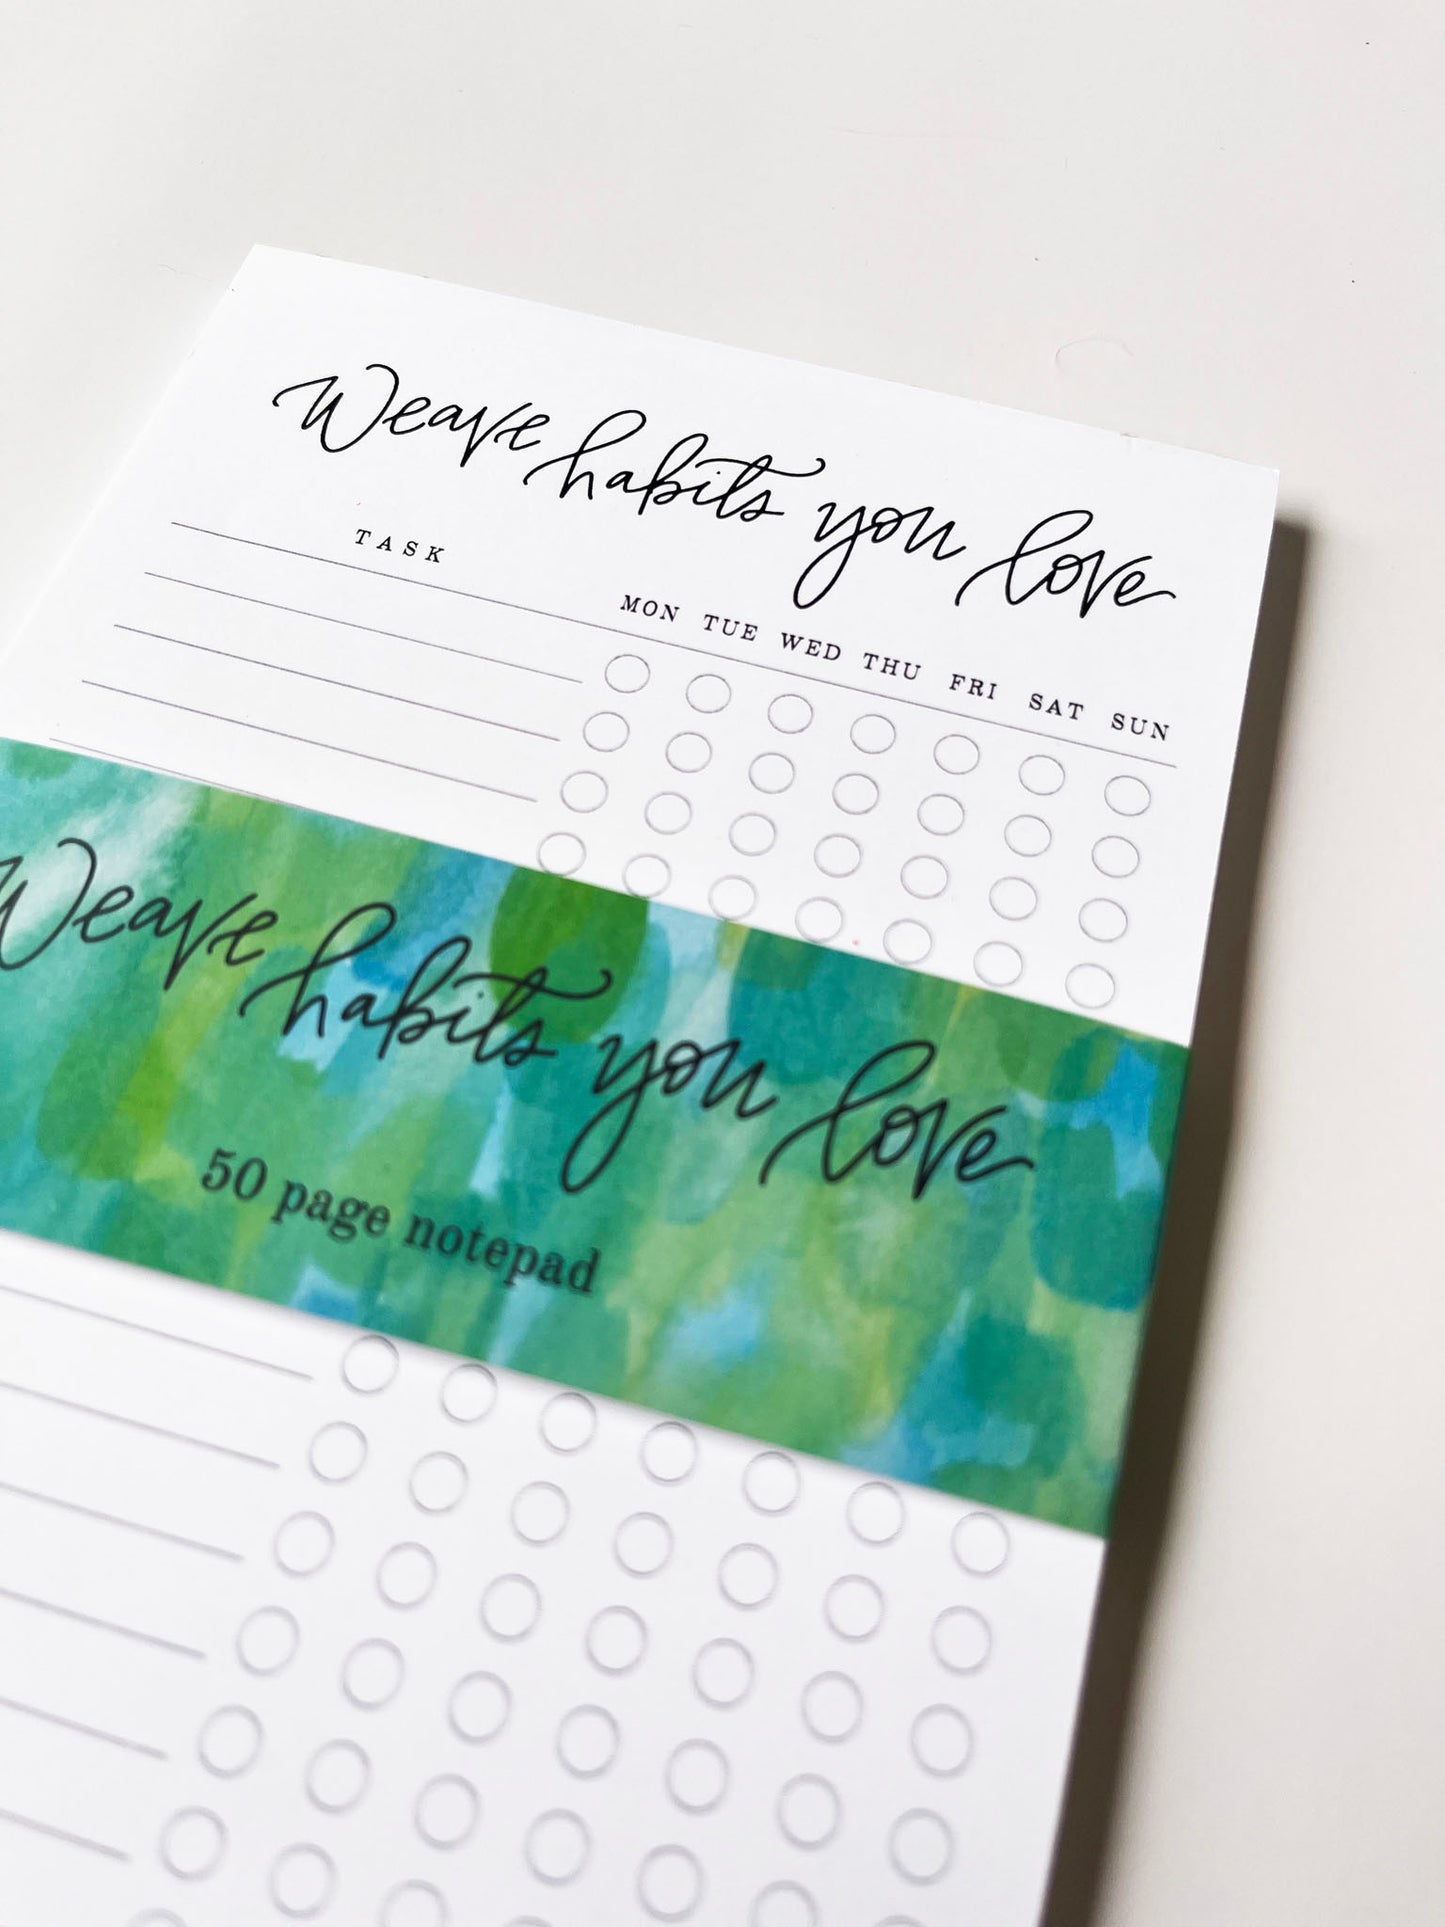 Weave habits you love
TASK
MON TUE WED THU FRI SAT SUN
Weave habits you love
50 page notepad